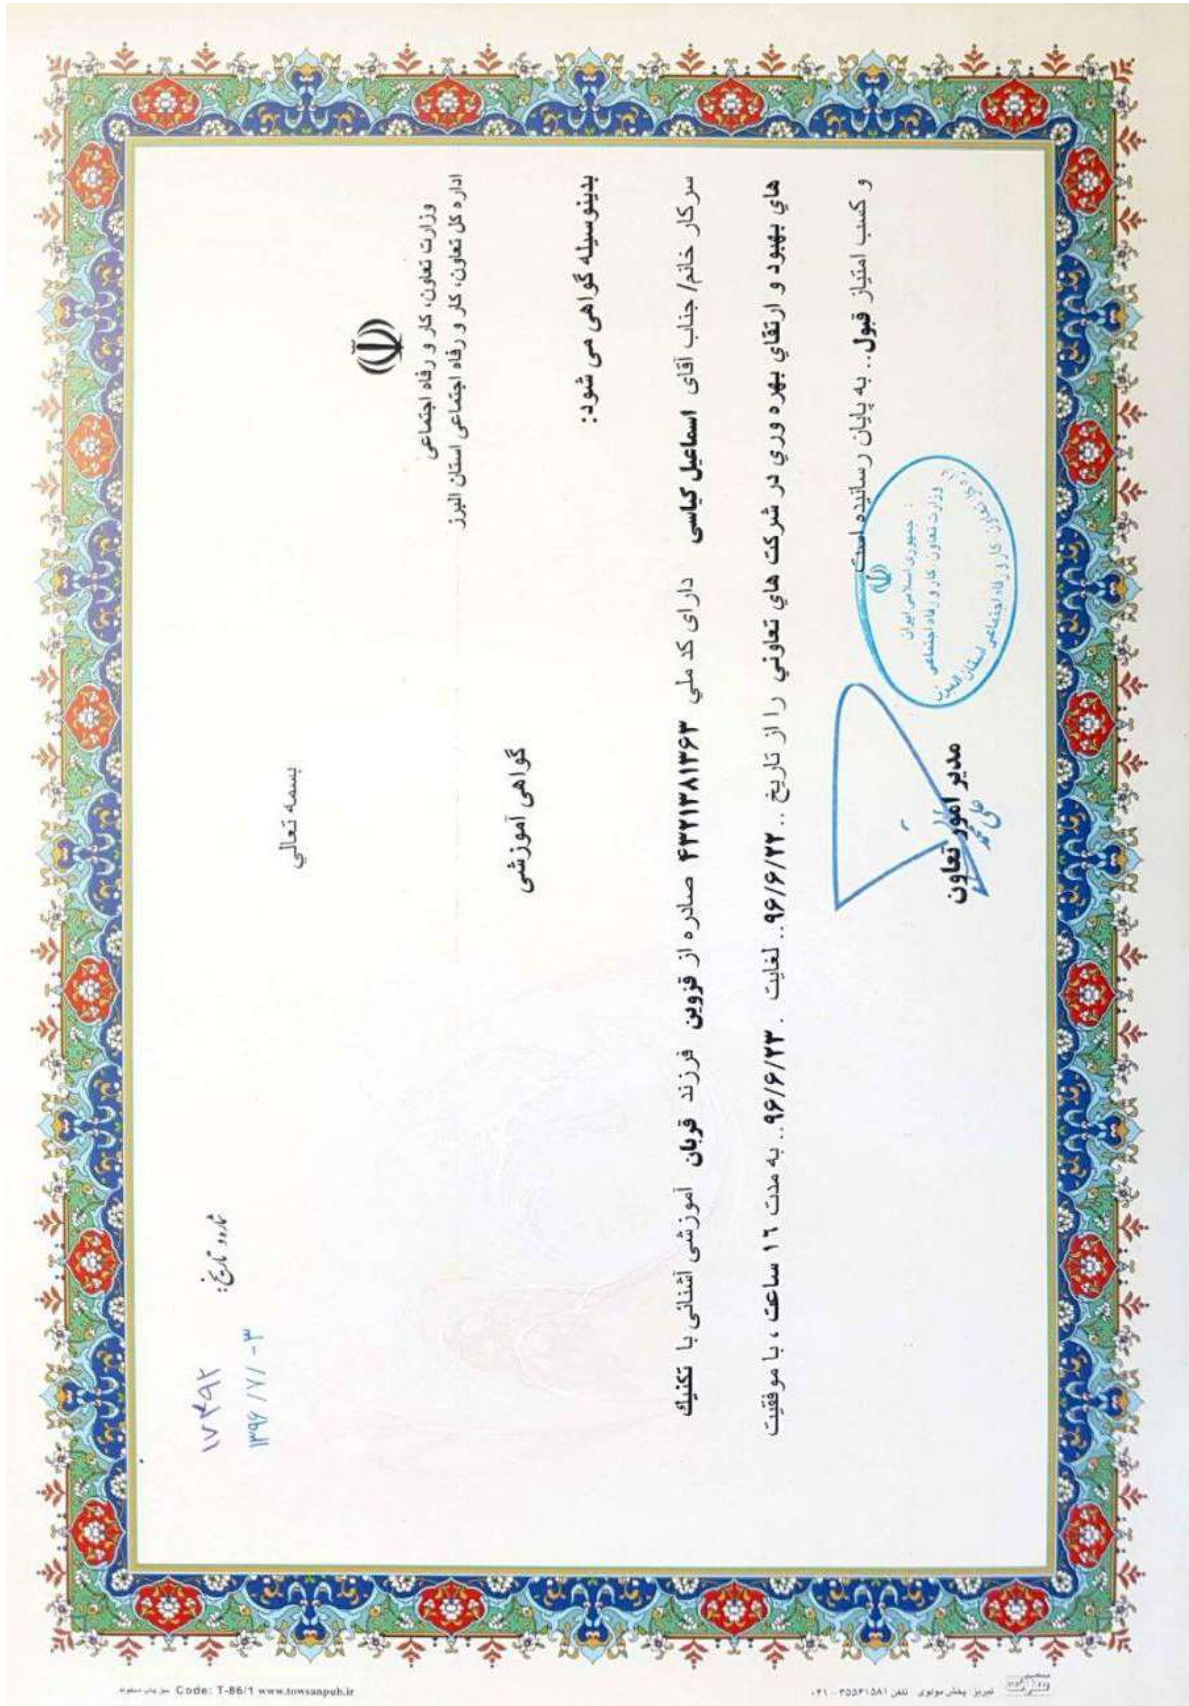 بسمه تعالي
شماره و تاریخ:
۱۷۴۹۲
۱۳۹۶ /۷/ -۳
وزارت تعاون، کار و رفاه اجتماعی
اداره کل تعاون، کار و رفاه اجتماعی استان البرز
گواهی آموزشی
بدینوسیله گواهی می شود:
سرکار خانم/ جناب آقای اسماعیل کیاسی دارای کد ملي ۴۳۲۱۳۸۱۳۶۳ صادره از قزوین فرزند قربان آموزشی آشنائی با تکنیك
هاي بهبود و ارتقاي بهره وري در شرکت هاي تعاوني را از تاریخ ..۹۶/۶/۲۲.. لغایت .۹۶/۶/۲۳.. به مدت ۱۶ ساعت ، با موفقیت
و کسب امتیاز قبول.. به پایان رسانیده است
مدیر امور تعاون
جمهوری اسلامی ایران
وزارت تعاون، کار و رفاه اجتماعی
اداره کل تعاون، کار و رفاه اجتماعی استان البرز
Code: T-86/1 www.towsanpub.ir
تبریز: پخش مولوی تلفن ۳۵۵۳۱۵۸۱ - ۰۴۱